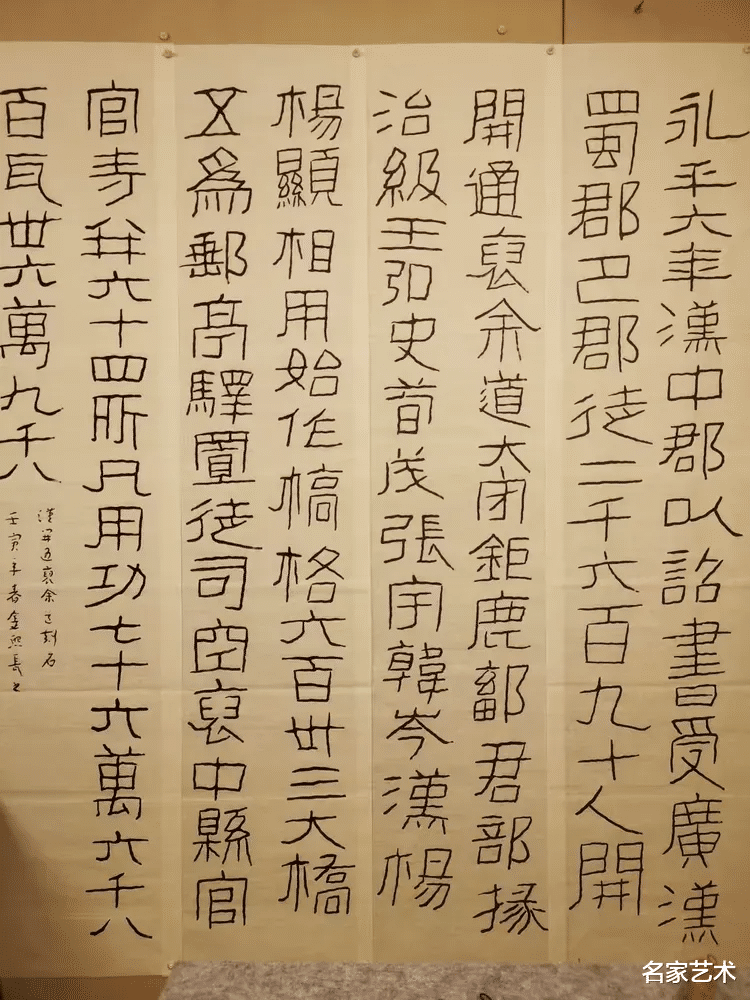 永平六年漢中郡以詔書受廣漢
蜀郡巴郡徒二千六百九十人開
開通褒余道大守鉅鹿鄐君部掾
治級王弘史荀茂張宇韓岑漢楊
楊顯相用始作橋格六百卅三大橋
五為郵亭驛置徒司空褒中縣官
官寺并六十四所凡用功七十六萬六千八
百瓦卅六萬九千八
漢開通褒余道刻石
壬寅年春金熙長書
名家艺术